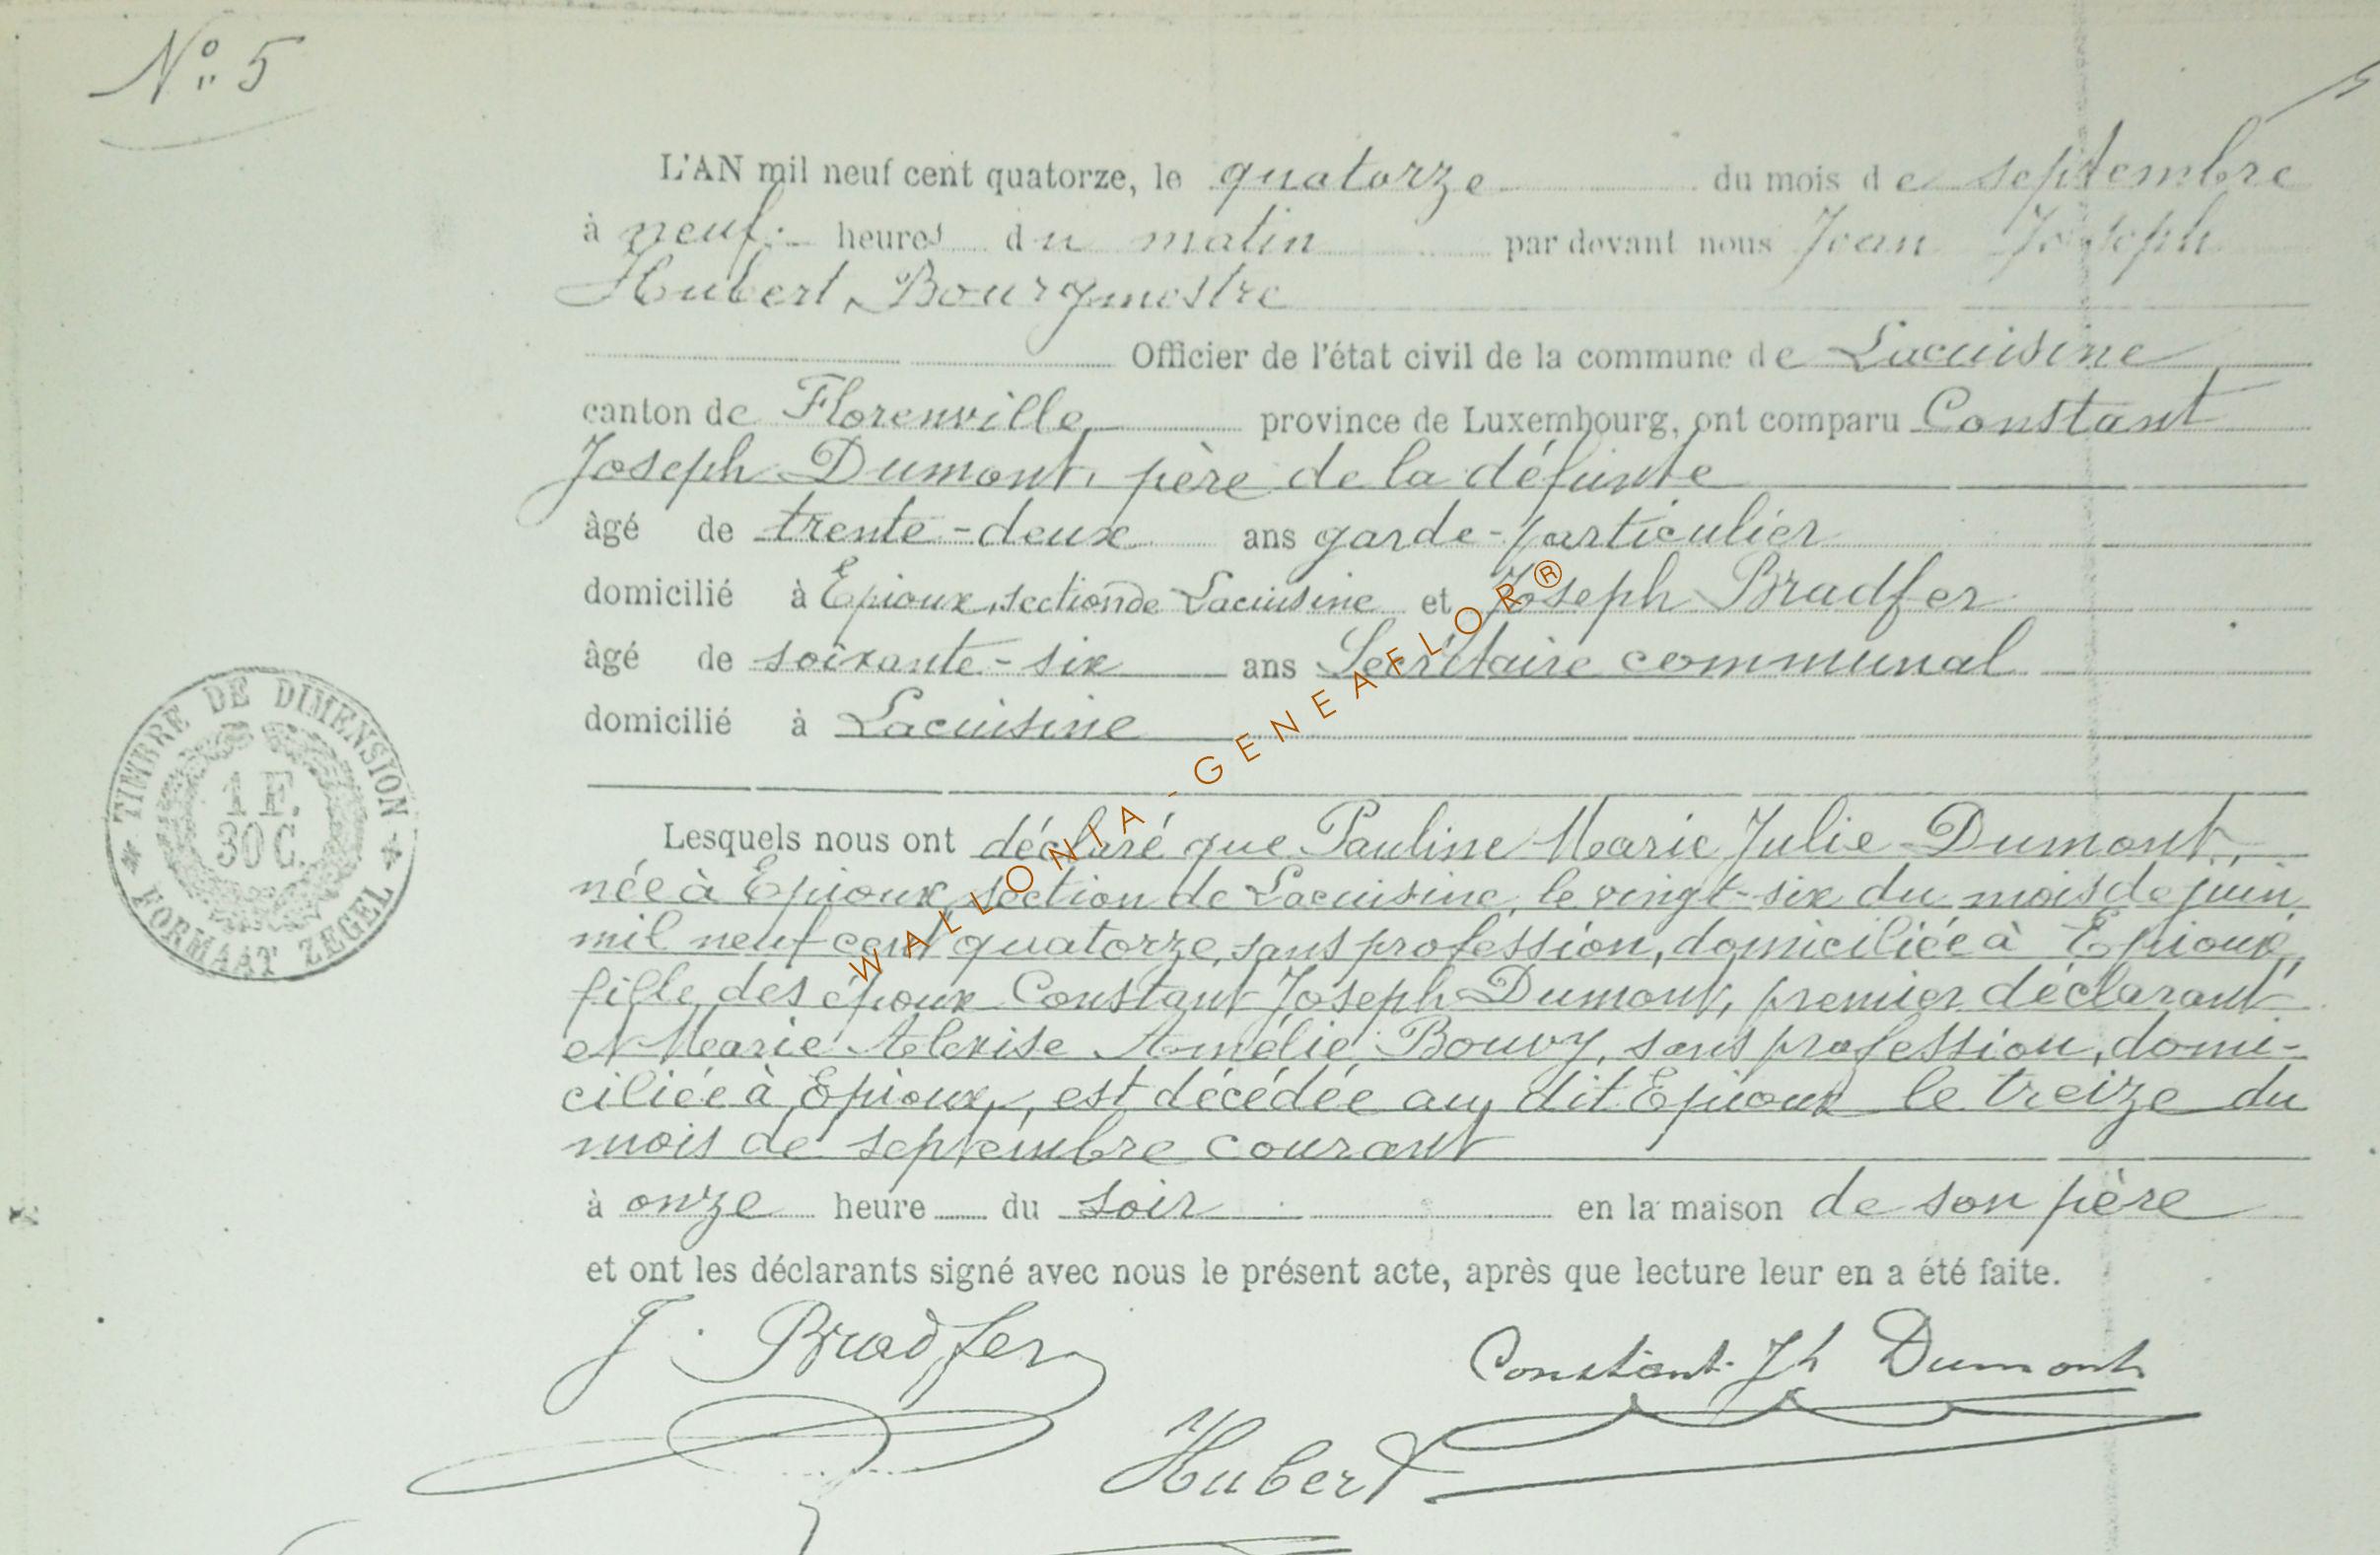 N° 5
L'AN mil neuf cent quatorze, le quatorze du mois de septembre
à neuf heures du matin par devant nous Jean Joseph
Hubert, Bourgmestre
Officier de l'état civil de la commune de Lacuisine
canton de Florenville province de Luxembourg, ont comparu Constant
Joseph Dumont, père de la défunte
âgé de trente-deux ans garde-particulier
domicilié à Epioux, section de Lacuisine et Joseph Bradfer
âgé de soixante-six ans Secrétaire communal
domicilié à Lacuisine
Lesquels nous ont déclaré que Pauline Marie Julie Dumont,
née à Epioux, section de Lacuisine, le vingt-six du mois de juin
mil neuf cent quatorze, sans profession, domiciliée à Epioux,
fille des époux Constant Joseph Dumont, premier déclarant
et Marie Alexise Amélie Bouvy, sans profession, domi-
ciliée à Epioux, est décédée au dit Epioux le treize du
mois de septembre courant
à onze heure du soir en la maison de son père
et ont les déclarants signé avec nous le présent acte, après que lecture leur en a été faite.
J. Bradfer
Constant Jh Dumont
Hubert
TIMBRE DE DIMENSION
1 F.
30 C.
FORMAAT ZEGEL
WALLONIA - GENEAFLOR®